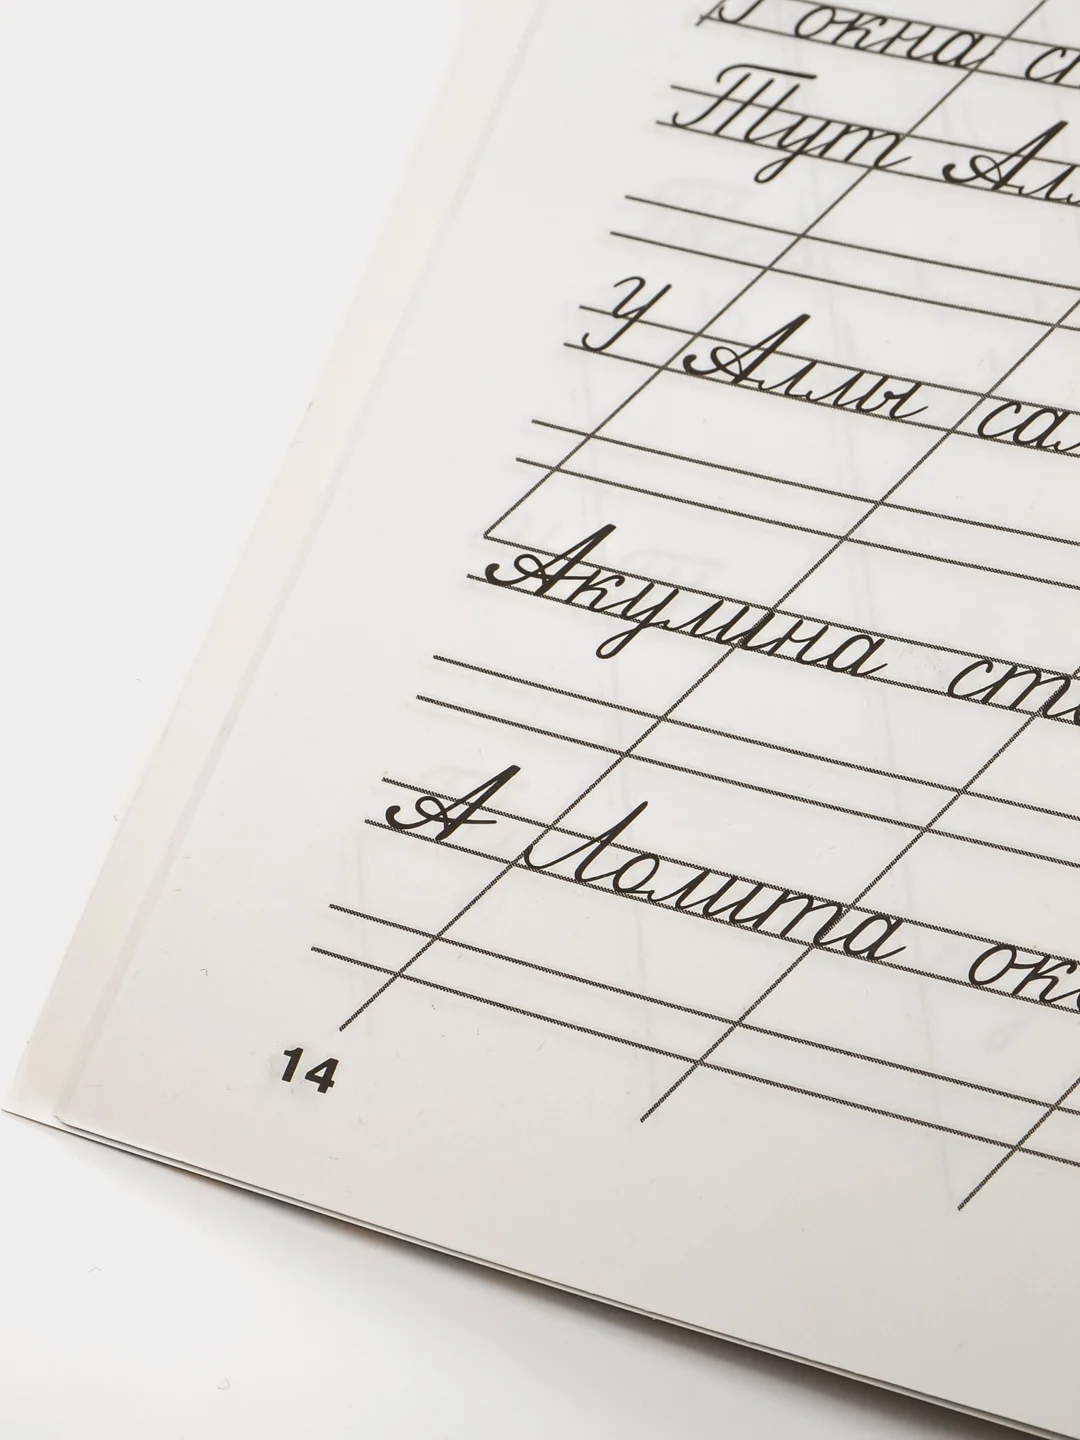 У окна ст
Тут Алл
У Аллы сал
Акулина сто
А Лолита око
14